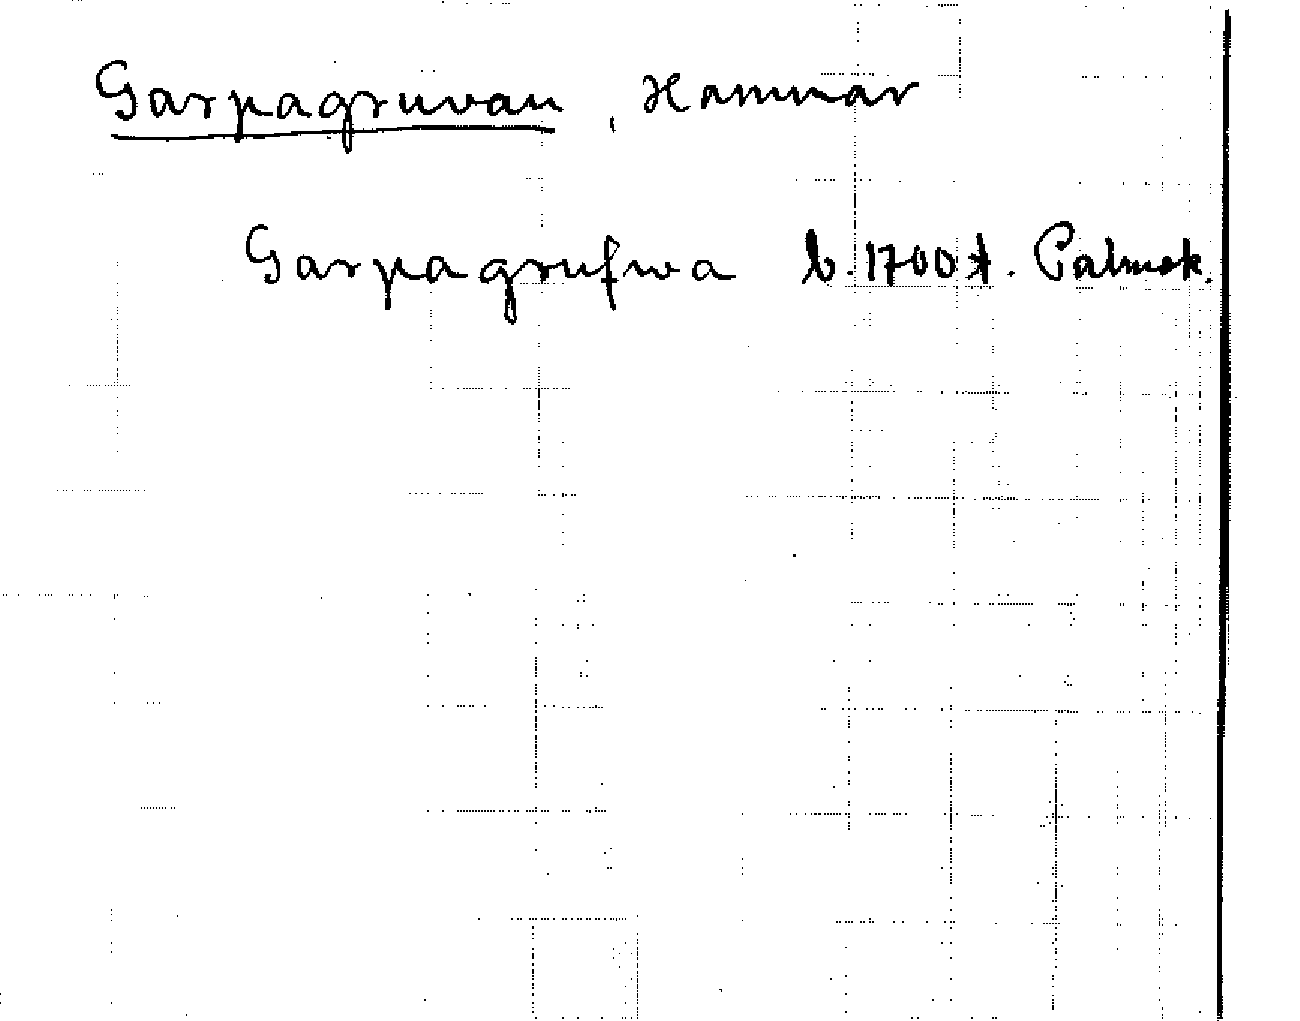 Garpagruvan, Hammar
Garpagrufwa b. 1700 t. Palmsk.